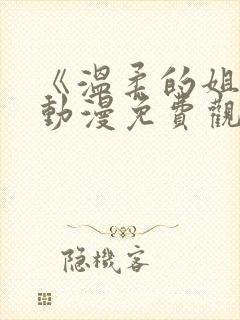 《溫柔的姐
動漫免費觀
隐機客